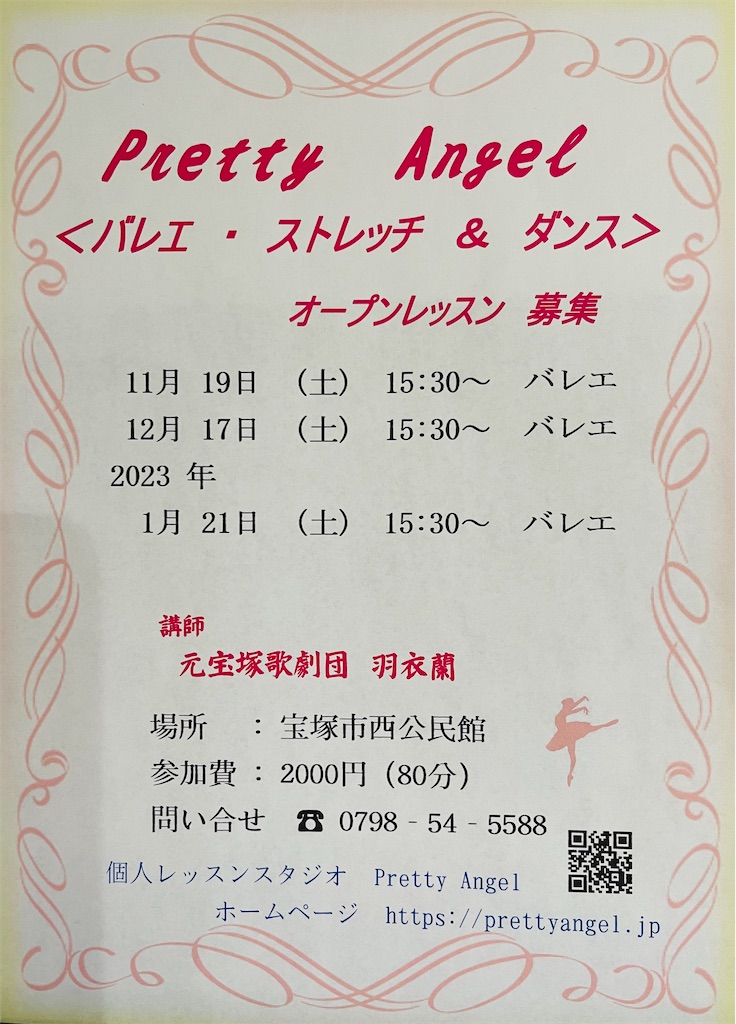 Pretty Angel
＜バレエ ・ ストレッチ ＆ ダンス＞
オープンレッスン 募集
11月 19日 （土） 15:30～ バレエ
12月 17日 （土） 15:30～ バレエ
2023 年
1月 21日 （土） 15:30～ バレエ
講師
元宝塚歌劇団 羽衣蘭
場所 ： 宝塚市西公民館
参加費 ： 2000円 (80分)
問い合せ ☎ 0798－54－5588
個人レッスンスタジオ Pretty Angel
ホームページ https://prettyangel.jp